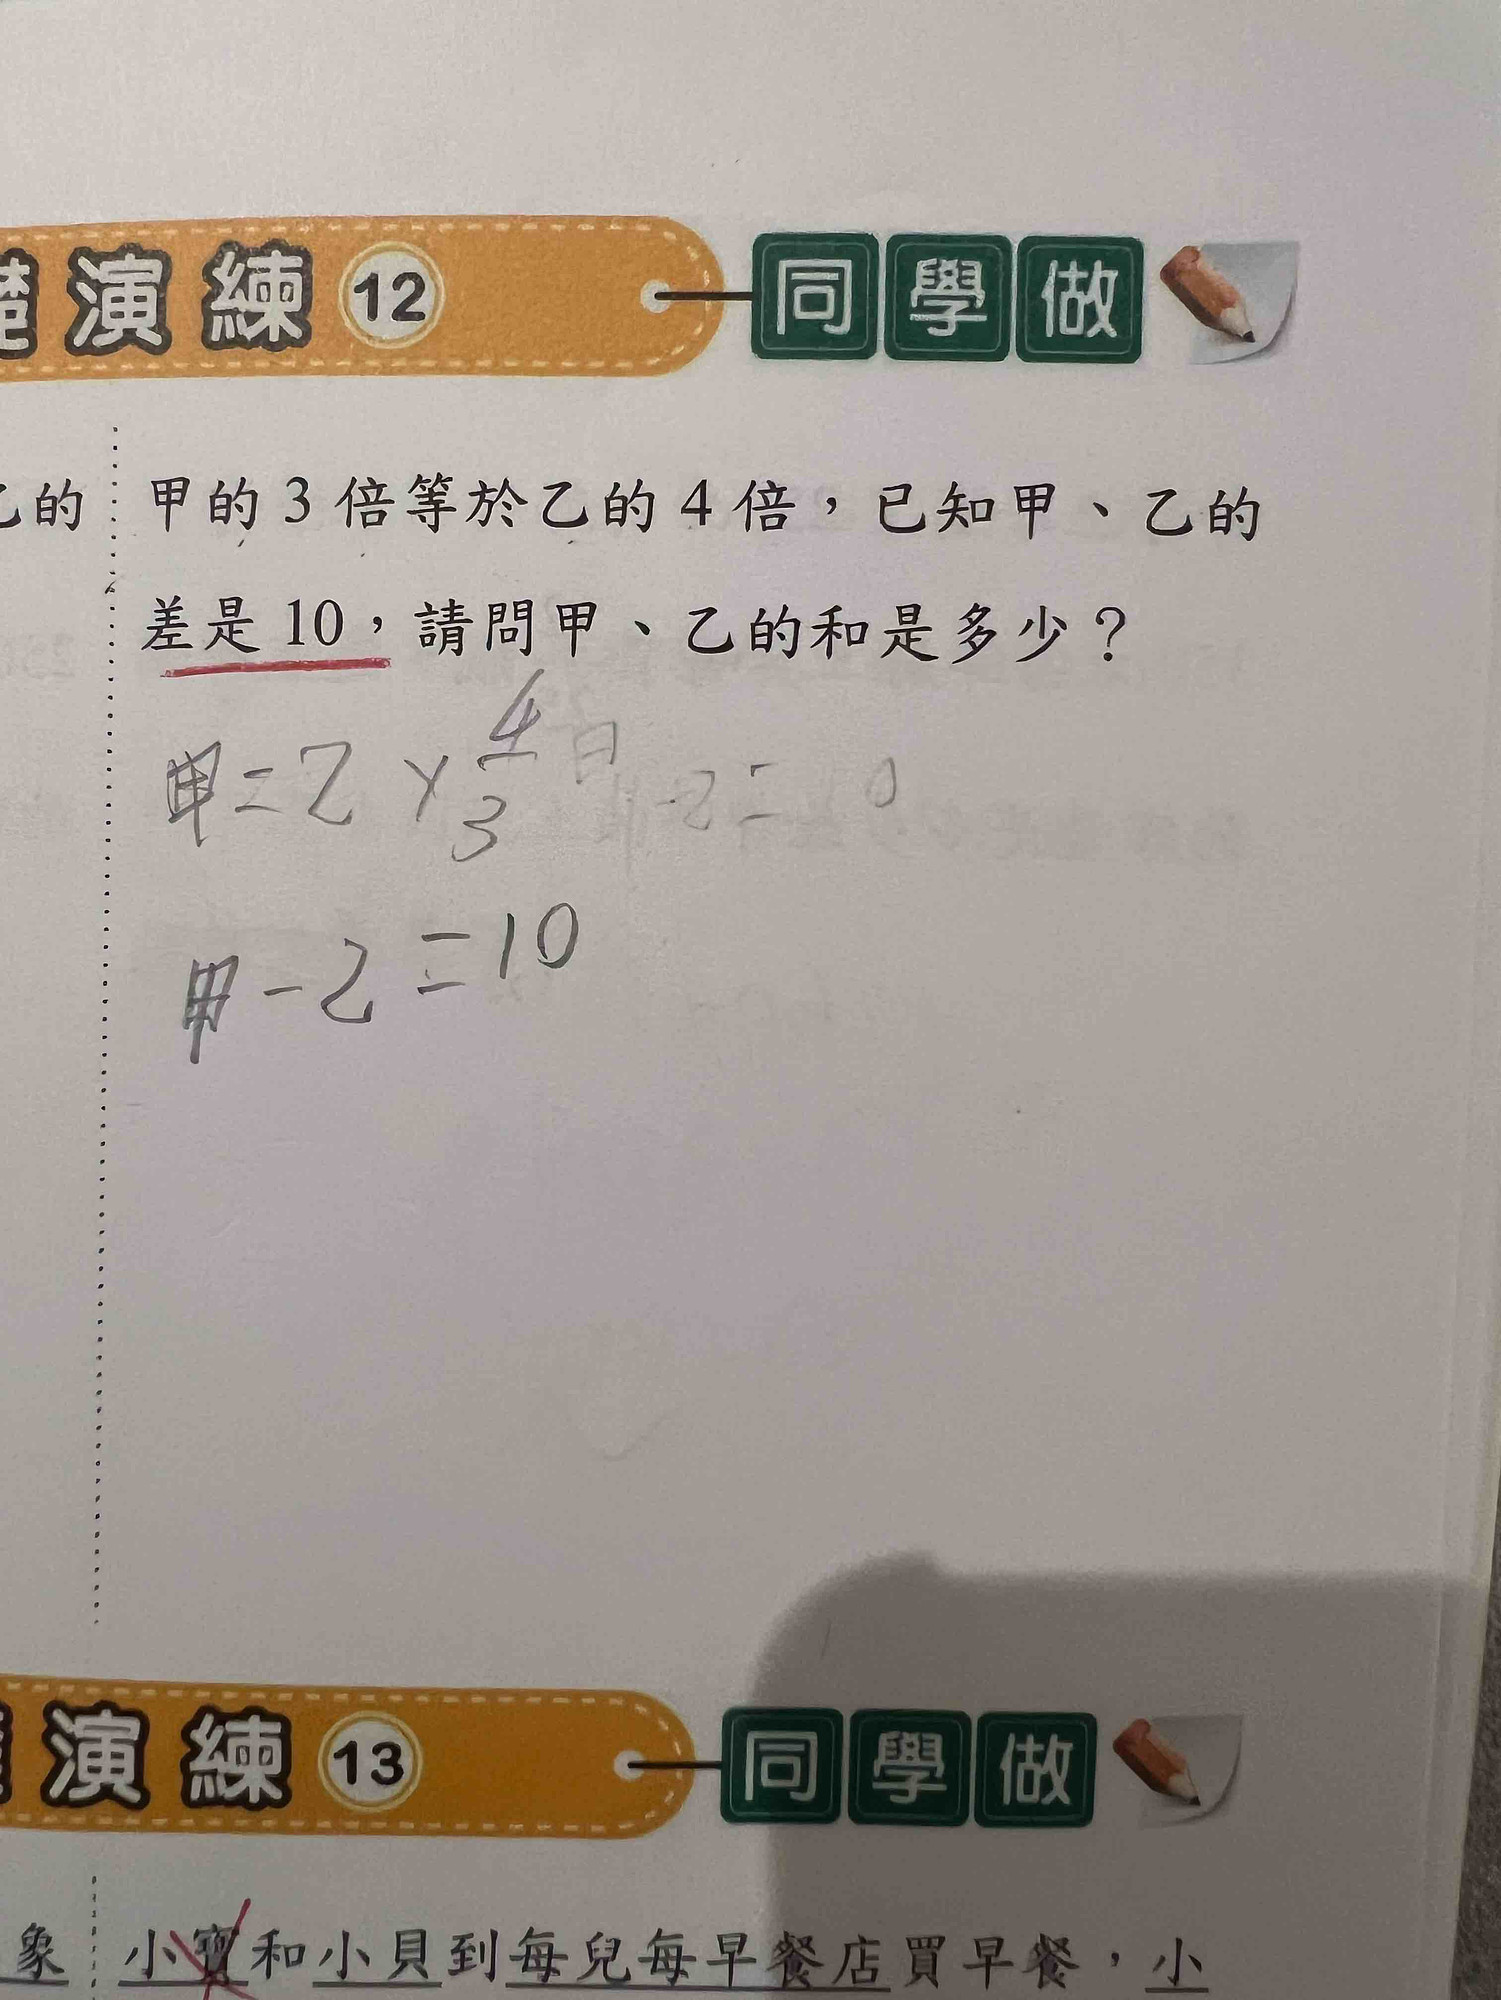 演練 12 同學做
的 甲的3倍等於乙的4倍，已知甲、乙的
差是10，請問甲、乙的和是多少？
甲=乙×4/3
甲-乙=10
演練 13 同學做
象 小寶和小貝到每兒每早餐店買早餐，小